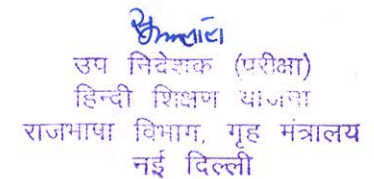 उप निदेशक (परीक्षा)
हिन्दी शिक्षण योजना
राजभाषा विभाग, गृह मंत्रालय
नई दिल्ली